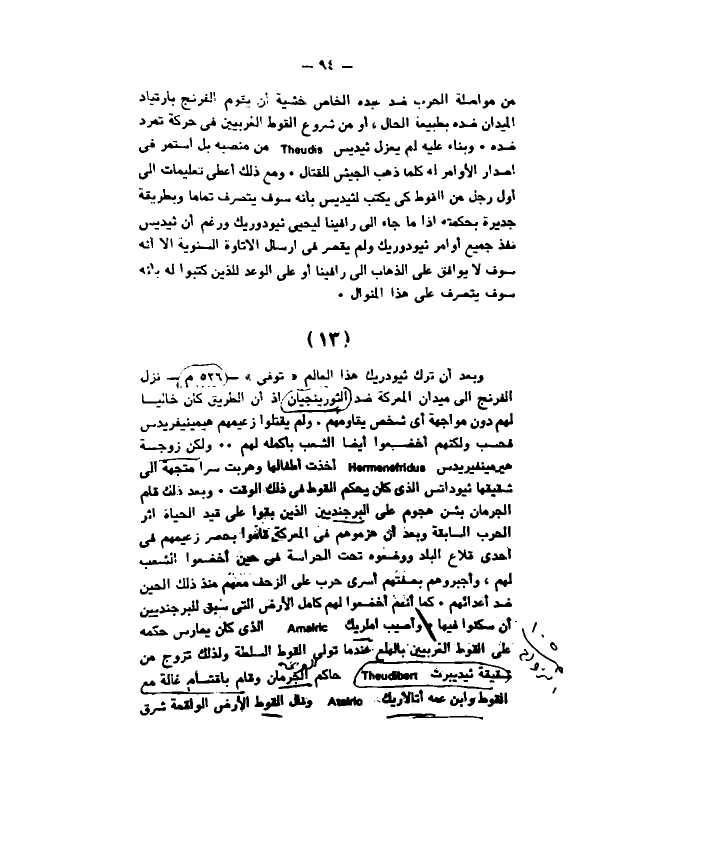 — ٩٤ —
من مواصلة الحرب ضد عبده الخاص خشية أن يقوم الفرنج بارتياد
الميدان ضده بطبيعة الحال ، أو من شروع القوط الغربيين فى حركة تمرد
ضده ٠ وبناء عليه لم يعزل ثيديس Theudis من منصبه بل استمر فى
اصدار الأوامر له كلما ذهب الجيش للقتال ٠ ومع ذلك أعطى تعليمات الى
أول رجل من القوط كى يكتب لثيديس بأنه سوف يتصرف تماما وبطريقة
جديرة بحكمته اذا ما جاء الى رافينا ليحيى ثيودوريك ورغم أن ثيديس
نفذ جميع أوامر ثيودوريك ولم يقصر فى ارسال الاتاوة السنوية الا أنه
سوف لا يوافق على الذهاب الى رافينا أو على الوعد للذين كتبوا له بأنه
سوف يتصرف على هذا المنوال ٠
(١٣)
وبعد أن ترك ثيودريك هذا العالم « توفى » — (٥٢٦ م) — نزل
الفرنج الى ميدان المعركة ضد الثورينجيان اذ أن الطريق كان خاليا
لهم دون مواجهة أى شخص يقاومهم ٠ ولم يقتلوا زعيمهم هيمينيفريدس
فحسب ولكنهم أخضعوا أيضا الشعب بأكمله لهم ٠٠ ولكن زوجة
هيرمينفيريدس Hermenefridus أخذت أطفالها وهربت سرا متجهة الى
شقيقها ثيوداتس الذى كان يحكم القوط فى ذلك الوقت ٠ وبعد ذلك قام
الجرمان بشن هجوم على البرجنديين الذين بقوا على قيد الحياة اثر
الحرب السابقة وبعد أن هزموهم فى المعركة قاموا بحصر زعيمهم فى
احدى قلاع البلد ووضعوه تحت الحراسة فى حين أخضعوا الشعب
لهم ، وأجبروهم بصفتهم أسرى حرب على الزحف معهم منذ ذلك الحين
ضد أعدائهم ٠ كما أنهم أخضعوا لهم كامل الأرض التى سبق للبرجنديين
أن سكنوا فيها وأصيب املريك Amalric الذى كان يمارس حكمه
على القوط الغربيين بالهلع عندما تولى القوط السلطة ولذلك تزوج من
شقيقة ثيديبرث Theudibert حاكم الجرمان وقام باقتسام غالة مع
القوط وابن عمه أتالاريك Atalric ونال القوط الأرض الواقعة شرق
١٠٥